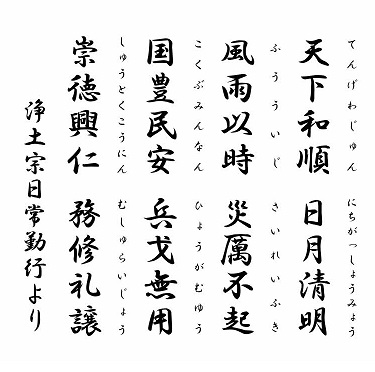 天下和順 日月清明
てんげわじゅん にちがっしょうみょう
風雨以時 災厲不起
ふういじ さいれいふき
国豊民安 兵戈無用
こくぶみんなん ひょうがむゆう
崇徳興仁 務修礼譲
しゅうとくこうにん むしゅらいじょう
浄土宗日常勤行より